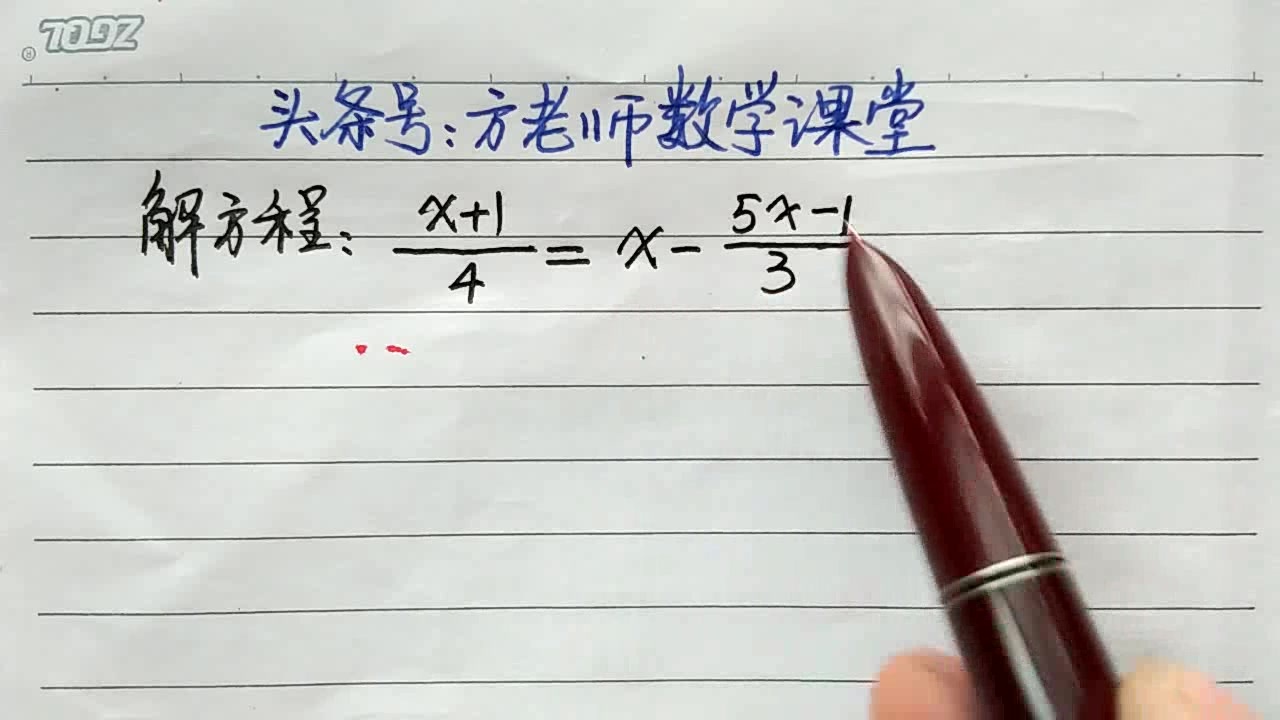 TOGZ
®
头条号：方老师数学课堂
解方程：(x+1)/4 = x - (5x-1)/3